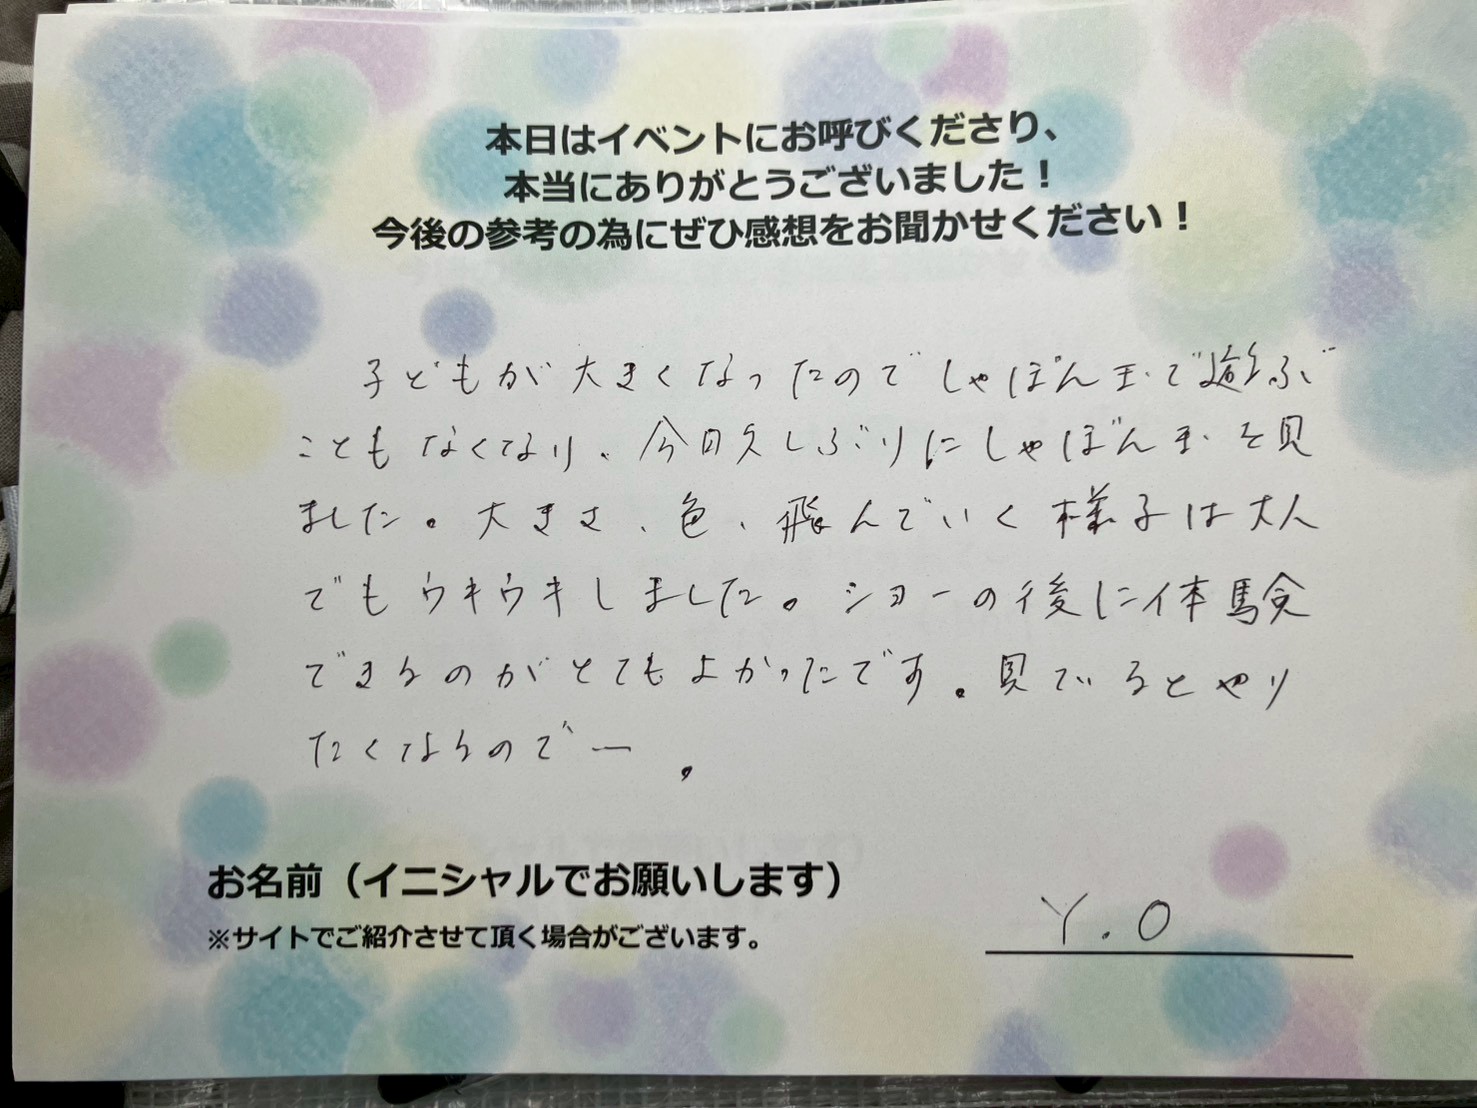 本日はイベントにお呼びくださり、
本当にありがとうございました！
今後の参考の為にぜひ感想をお聞かせください！
子どもが大きくなったのでしゃぼん玉で遊ぶ
こともなくなり、今日久しぶりにしゃぼん玉を見
ました。大きさ、色、飛んでいく様子は大人
でもウキウキしました。ショーの後に体験
できるのがとてもよかったです。見ているとやり
たくなるのでー。
お名前（イニシャルでお願いします）
※サイトでご紹介させて頂く場合がございます。
Y.O